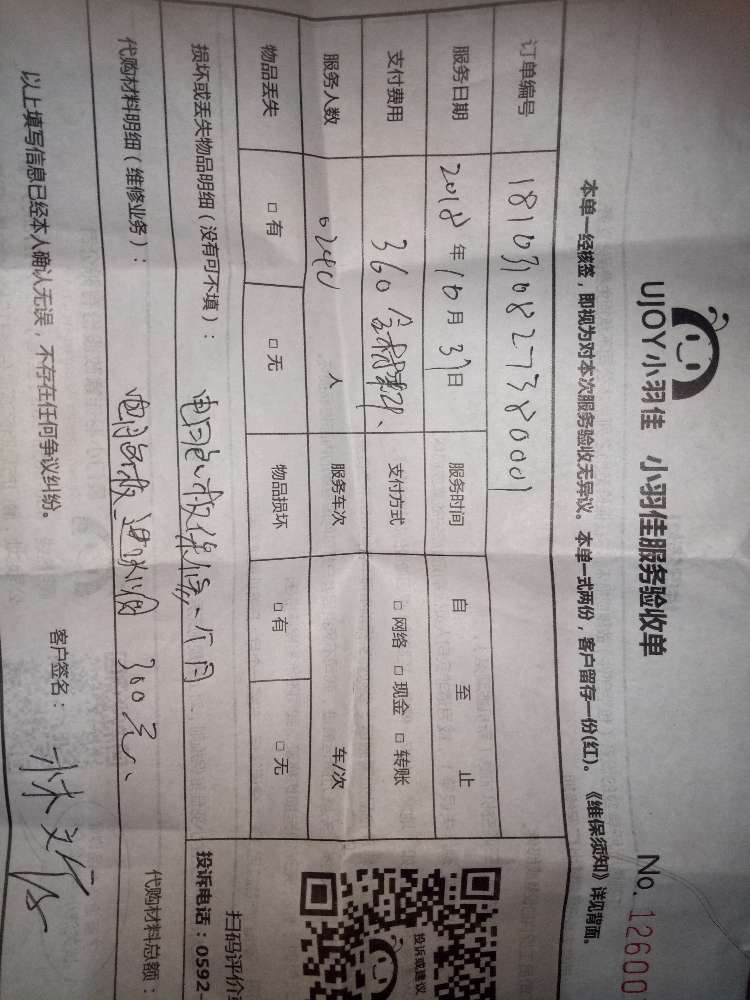 UJOY小羽佳 小羽佳服务验收单 No. 12600
本单一经核签，即视为对本次服务验收无异议。本单一式两份，客户留存一份(红)。《维保须知》详见背面。
订单编号 1810310827380001
服务日期 2018 年 10 月 31 日 服务时间 自 至 止
支付费用 360 含材料、 支付方式 □ 网络 □ 现金 □ 转账
服务人数 人 服务车次 车/次
物品丢失 □ 有 □ 无 物品损坏 □ 有 □ 无
损坏或丢失物品明细（没有可不填）： 电脑板保修一个月
代购材料明细（维修业务）： 电脑板 300元、
代购材料总额：
以上填写信息已经本人确认无误，不存在任何争议纠纷。
客户签名：
投诉或建议
扫码评价
投诉电话：0592-